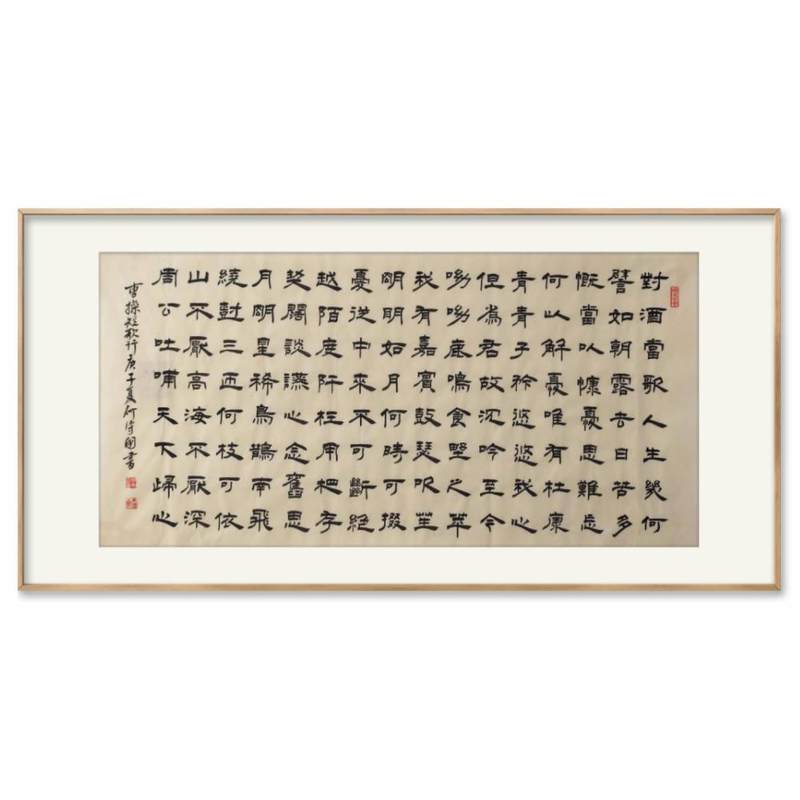 對酒當歌人生幾何
譬如朝露去日苦多
慨當以慷憂思難忘
何以解憂唯有杜康
青青子衿悠悠我心
但為君故沈吟至今
呦呦鹿鳴食野之苹
我有嘉賓鼓瑟吹笙
明明如月何時可掇
憂從中來不可斷絕
越陌度阡枉用相存
契闊談讌心念舊恩
月明星稀烏鵲南飛
繞樹三匝何枝可依
山不厭高海不厭深
周公吐哺天下歸心
曹操短歌行庚子夏書